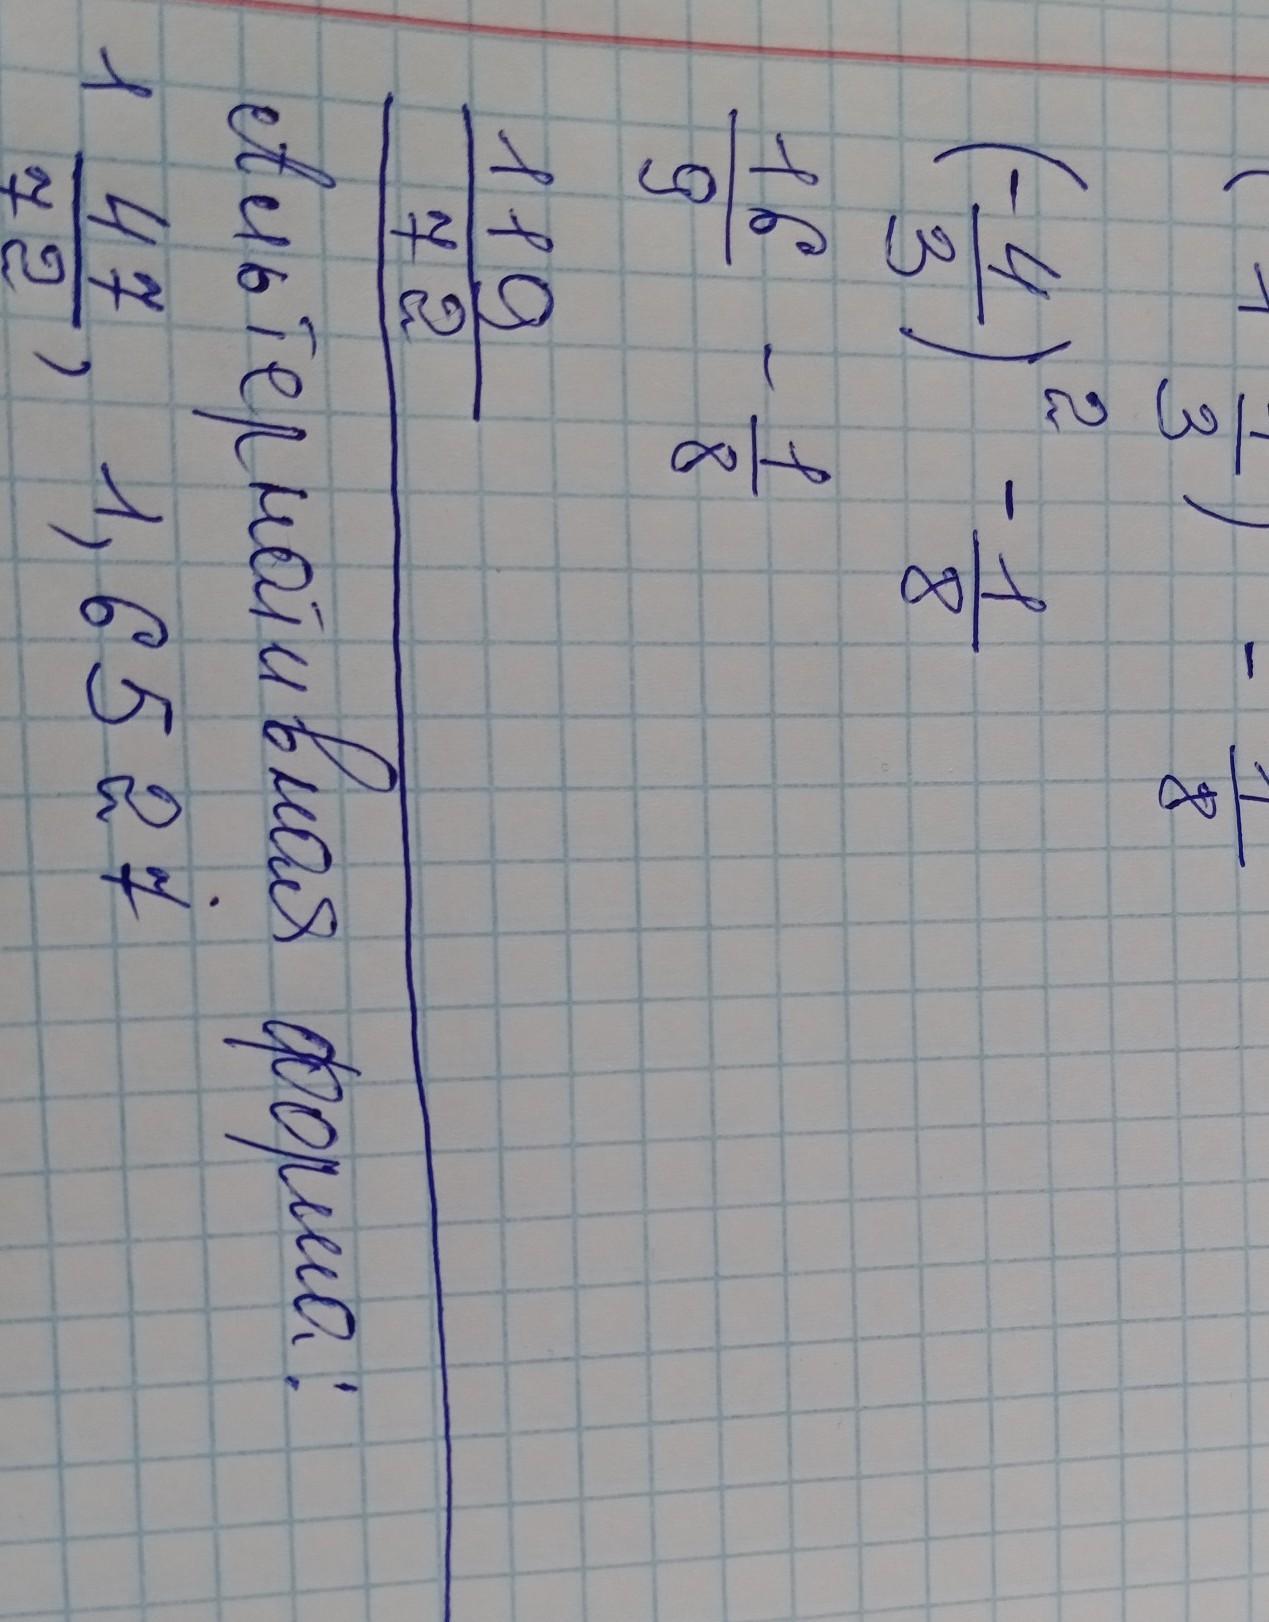 ( 1 1/3 ) - 1/8
( - 4/3 )² - 1/8
16/9 - 1/8
119/72
Альтернативная форма:
1 47/72, 1,6527